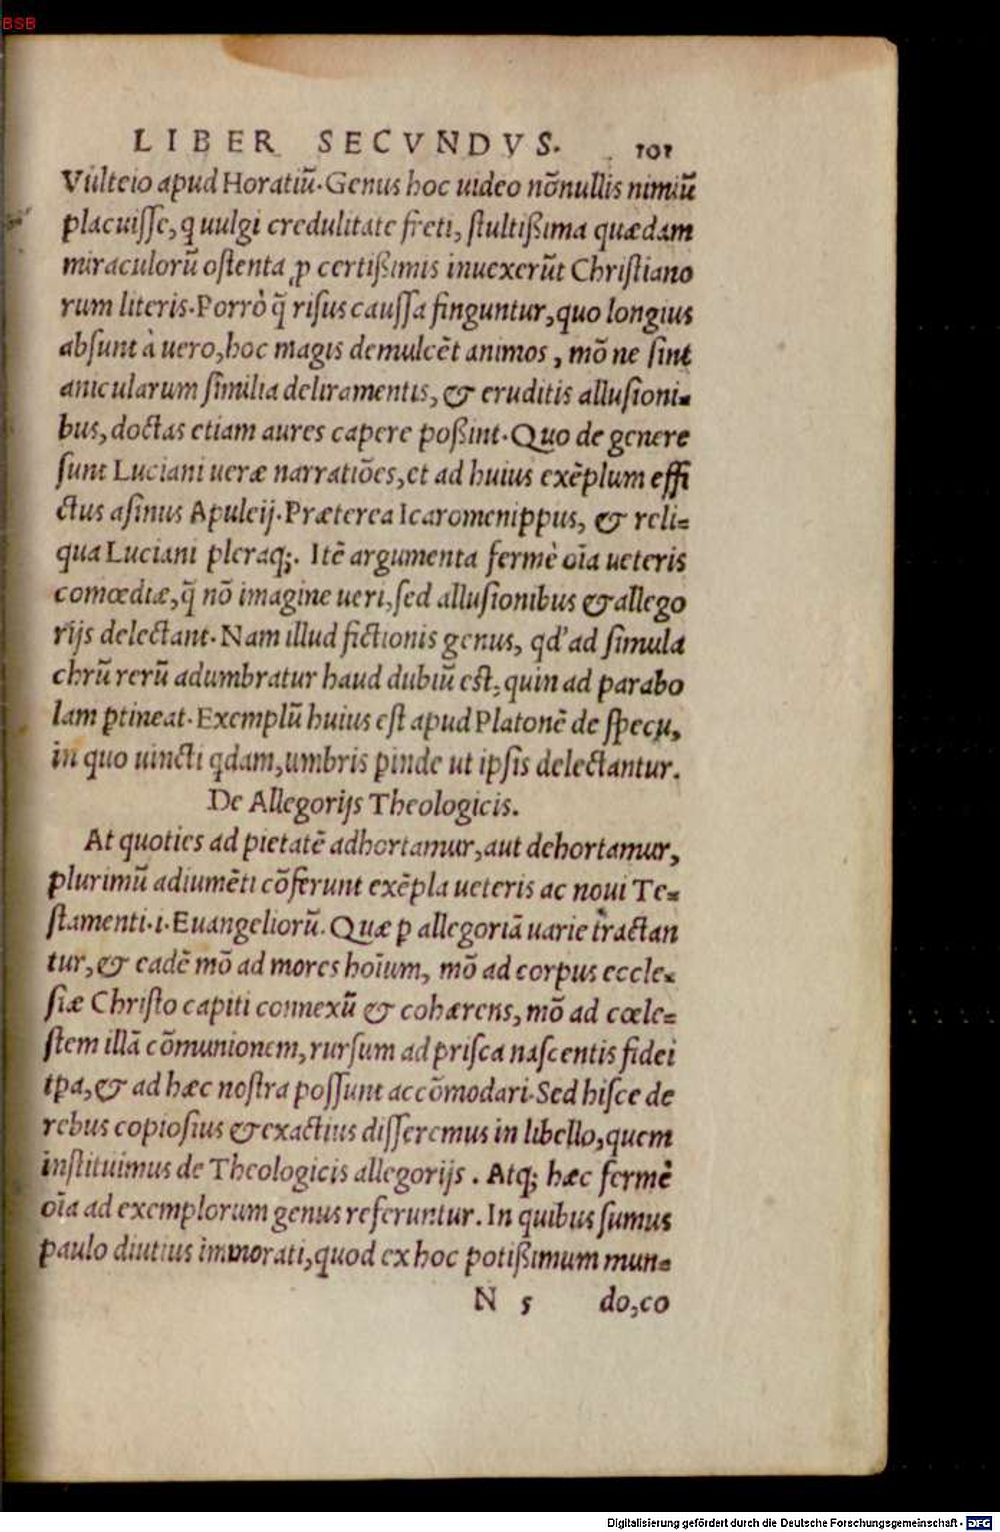 BSB
LIBER SECVNDVS. 101
Vulteio apud Horatiũ. Genus hoc uideo nõnullis nimiũ
placuisse, q uulgi credulitate freti, stultißima quædam
miraculorũ ostenta ꝓ certißimis inuexerũt Christiano
rum literis. Porrò q̃ risus caussa finguntur, quo longius
absunt à uero, hoc magis demulcẽt animos, mõ ne sint
anicularum similia deliramentis, & eruditis allusioni-
bus, doctas etiam aures capere poßint. Quo de genere
sunt Luciani ueræ narratiões, et ad huius exẽplum effi
ctus asinus Apuleij. Præterea Icaromenippus, & reli=
qua Luciani pleraq;. Itẽ argumenta fermè oĩa ueteris
comœdiæ, q̃ nõ imagine ueri, sed allusionibus & allego
rijs delectant. Nam illud fictionis genus, qd' ad simula
chrũ rerũ adumbratur haud dubiũ est, quin ad parabo
lam ꝑtineat. Exemplũ huius est apud Platonẽ de specu,
in quo uincti qdam, umbris ꝑinde ut ipsis delectantur.
De Allegorijs Theologicis.
At quoties ad pietatẽ adhortamur, aut dehortamur,
plurimũ adiumẽti cõferunt exẽpla ueteris ac noui Te=
stamenti .i. Euangeliorũ. Quæ ꝑ allegoriã uarie tractan
tur, & eadẽ mõ ad mores hoĩum, mõ ad corpus eccle=
siæ Christo capiti connexũ & cohærens, mõ ad cœle=
stem illã cõmunionem, rursum ad prisca nascentis fidei
tpa, & ad hæc nostra possunt accõmodari. Sed hisce de
rebus copiosius & exactius disseremus in libello, quem
instituimus de Theologicis allegorijs. Atq; hæc fermè
oĩa ad exemplorum genus referuntur. In quibus sumus
paulo diutius immorati, quod ex hoc potißimum mun=
N 5 do, co
Digitalisierung gefördert durch die Deutsche Forschungsgemeinschaft - DFG